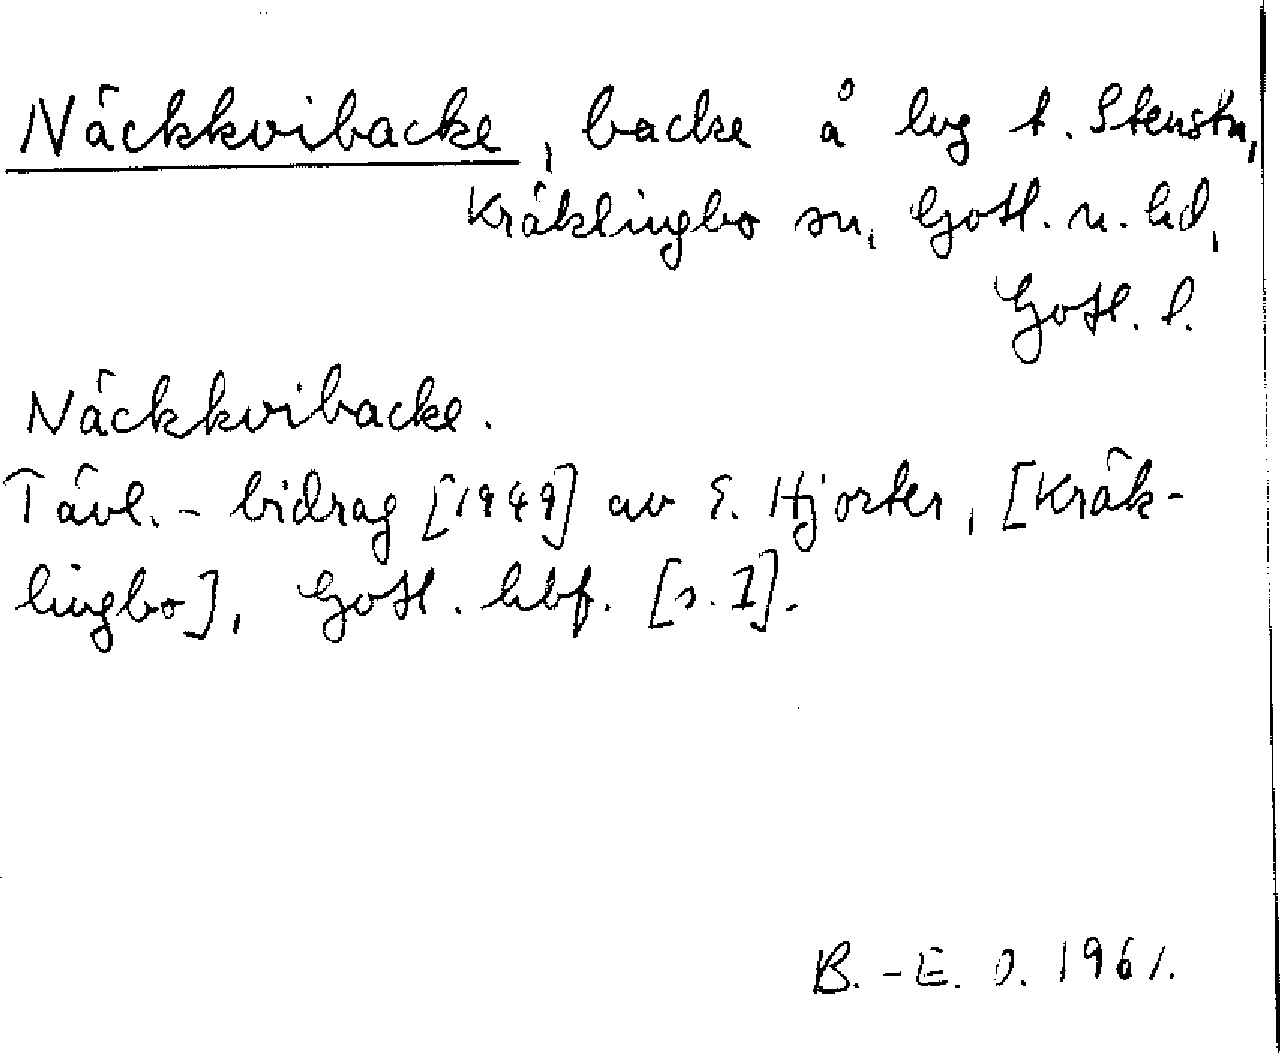 Näckkvibacke, backe å lvg t. Stenstu,
Kräklingbo sn, Gotl. n. hd,
Gotl. l.
Näckkvibacke.
Tävl.- bidrag [1949] av E. Hjorter, [Kräk-
lingbo], Gotl. hbf. [s. 1].
B.-E. O. 1961.